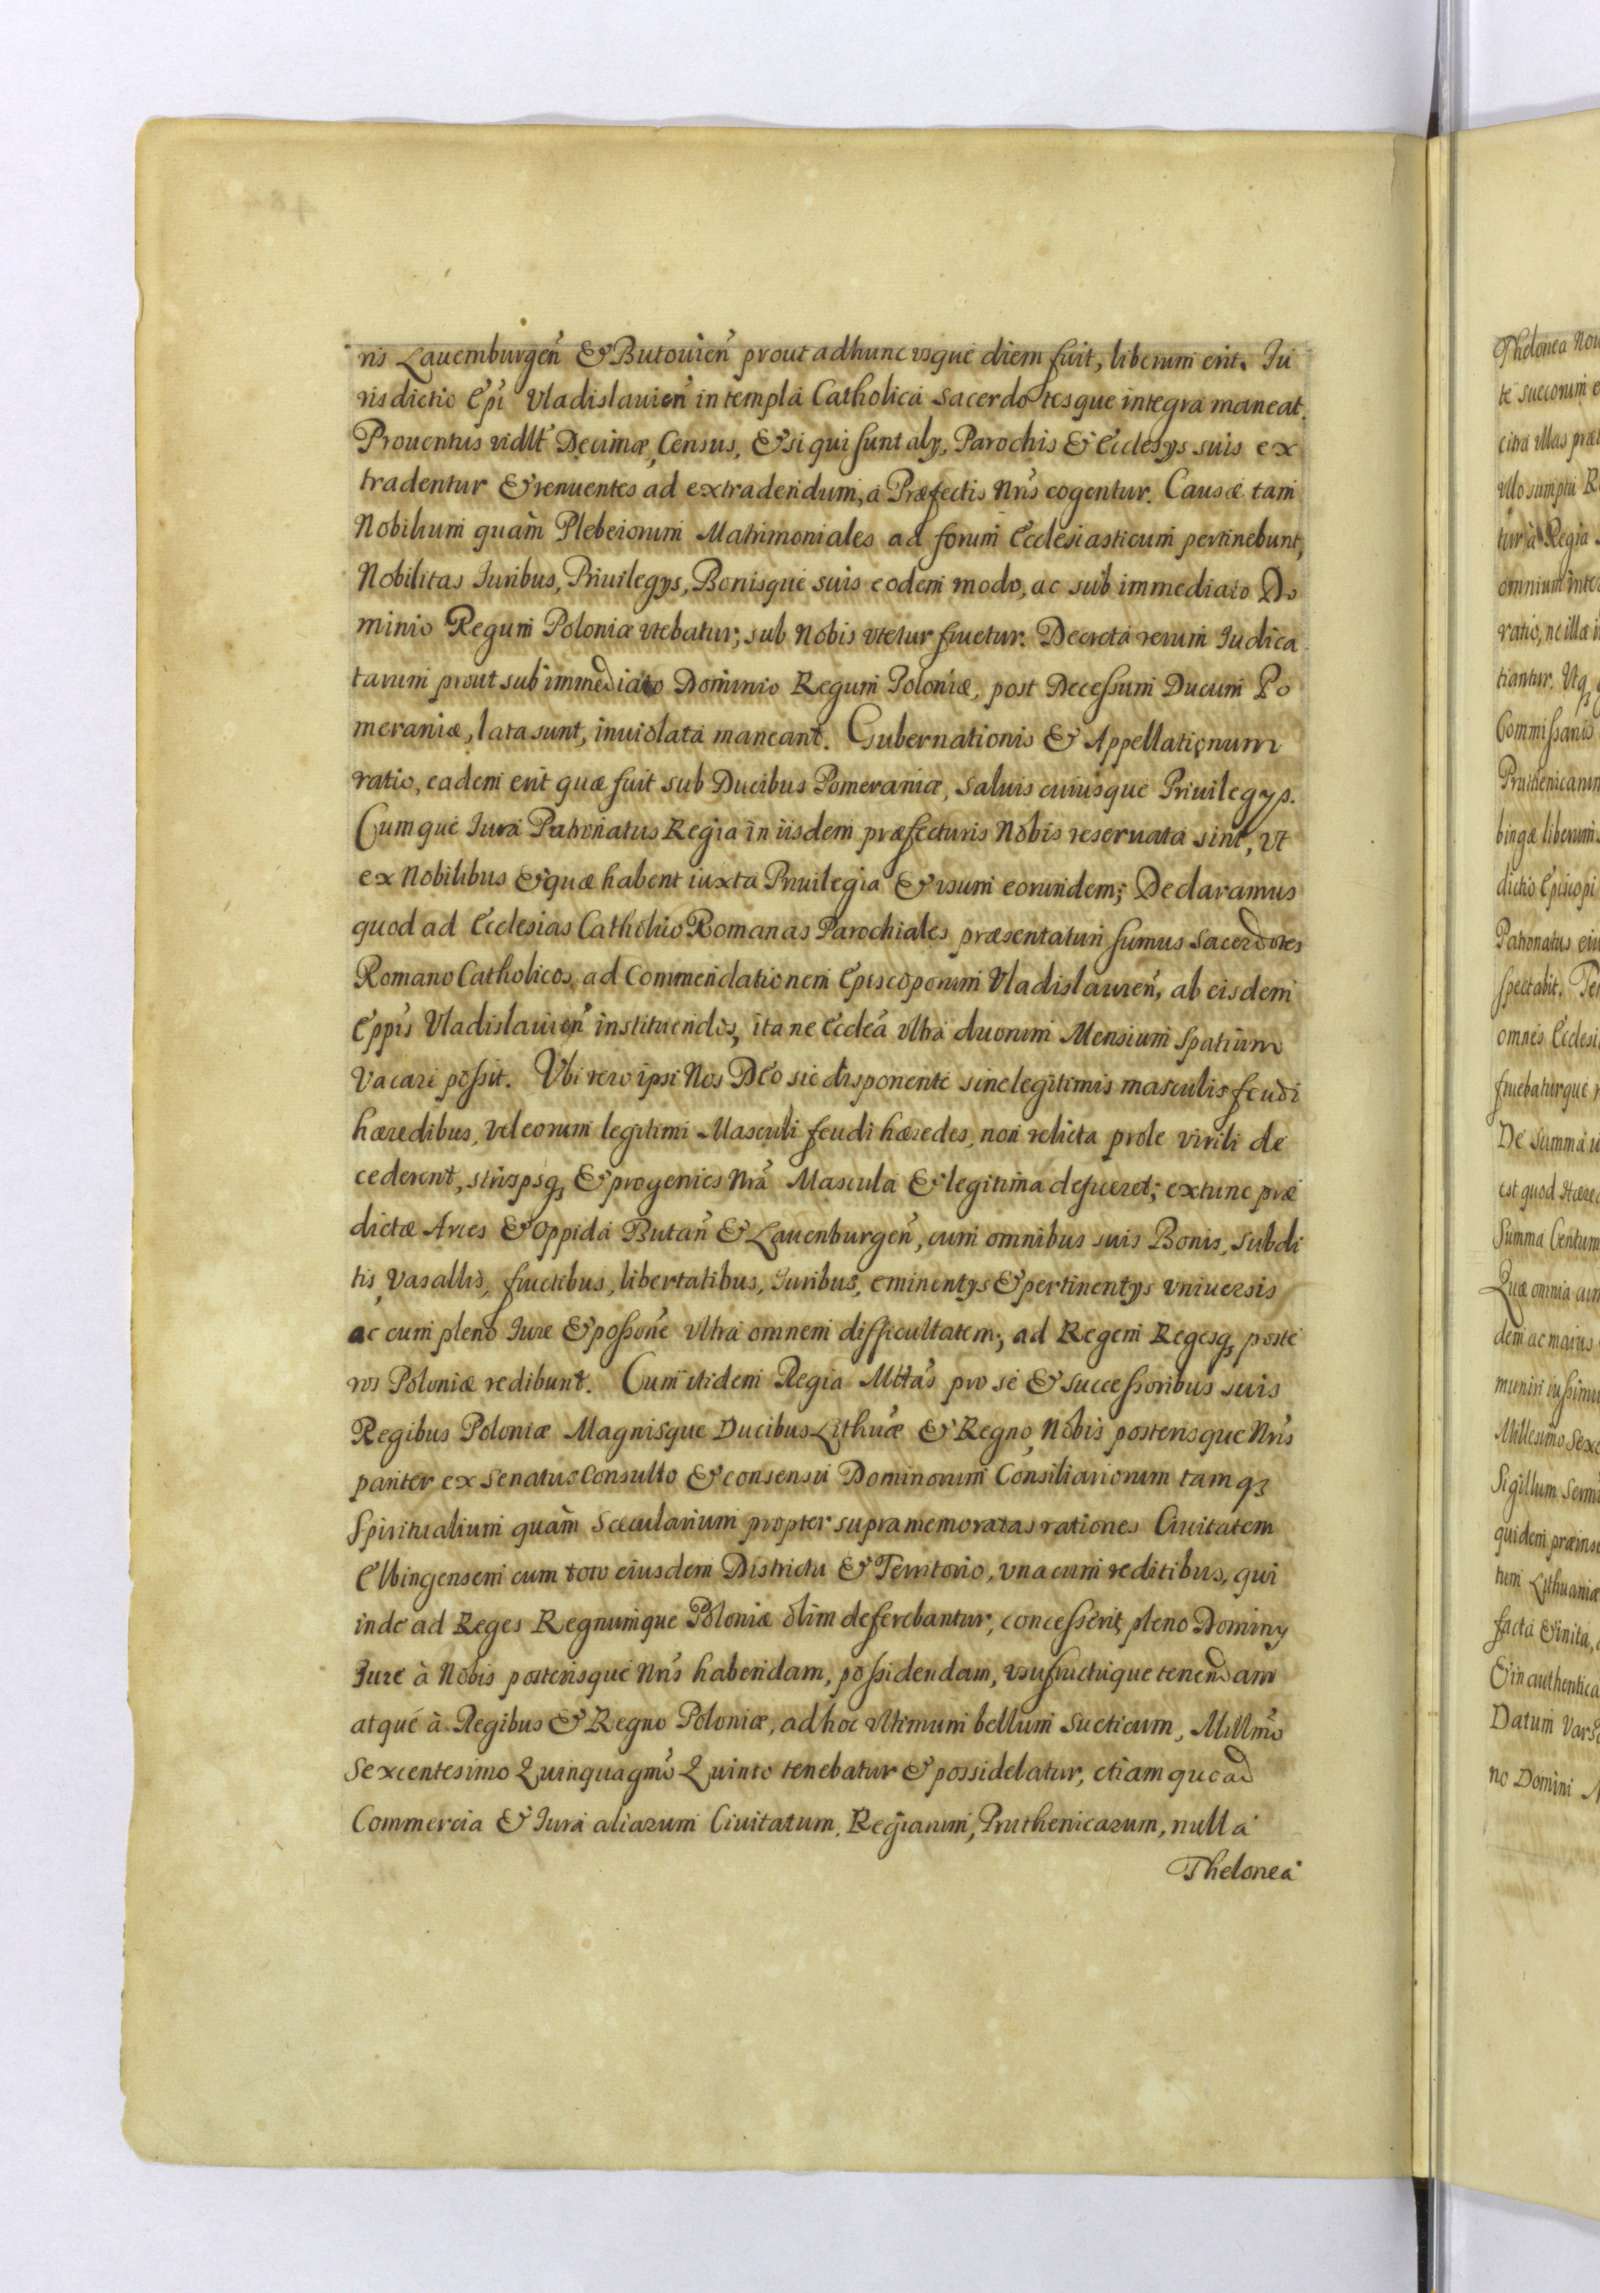 ris Lauemburgen̄ & Butouien̄ prout adhunc usque diem fuit, liberum erit. Iu
risdictio Epī Vladislauien̄ in templa Catholica Sacerdotesque integra maneat.
Prouentus vidlt Decimæ, Census, & si qui sunt alij, Parochis & Ecclesijs suis ex
tradentur & renuentes ad extradendum, a Præfectis Nrīs cogentur. Causæ tam
Nobilium quàm Plebeiorum Matrimoniales ad forum Ecclesiasticum pertinebunt,
Nobilitas Iuribus, Priuilegijs, Bonisque suis eodem modo, ac sub immediato Do
minio Regum Poloniæ vtebatur, sub Nobis vtetur fruetur. Decreta rerum Iudica
tarum prout sub immediato Dominio Regum Poloniæ, post Decessum Ducum Po
meraniæ, lata sunt, inuiolata maneant. Gubernationis & Appellationum
ratio, eadem erit quæ fuit sub Ducibus Pomeraniæ, saluis cuiusque Priuilegijs.
Cumque Iura Patronatus Regia in iisdem præfecturis Nobis reseruata sint, vt
ex Nobilibus & quæ habent iuxta Priuilegia & usum eorundem; Declaramus
quod ad Ecclesias Catholico Romanas Parochiales præsentaturi sumus Sacerdotes
Romano Catholicos, ad Commendationem Episcoporum Vladislauien̄, ab eisdem
Eppīs Vladislauien̄ instituendos, ita ne Eccleā vltra duorum Mensium Spatium
Vacare possit. Vbi vero ipsi Nos Deo sic disponente sine legitimis masculis feudi
hæredibus, vel eorum legitimi Masculi feudi hæredes, non relicta prole virili de
cederent, stirpsq, & progenies Nrā Mascula & legitima defueret; extunc præ
dictæ Arces & Oppida Butan̄ & Lauenburgen̄, cum omnibus suis Bonis, subdi
tis, Vasallis, fructibus, libertatibus, Iuribus, eminentijs & pertinentijs vniuersis
ac cum pleno Iure & possōne vltra omnem difficultatem, ad Regem Regesq, poste
ros Poloniæ redibunt. Cum itidem Regia Mttās pro se & successoribus suis
Regibus Poloniæ Magnisque Ducibus Lithuāe & Regno, Nobis posterisque Nrīs
pariter ex Senatus Consulto & consensu Dominorum Consiliariorum tam q,
Spiritualium quàm Sæcularium propter supra memoratas rationes Ciuitatem
Elbingensem cum toto eiusdem Districtu & Territorio, vna cum reditibus, qui
inde ad Reges Regnumque Poloniæ olim deferebantur, concesserit, pleno Dominij
Iure à Nobis posterisque Nrīs habendam, possidendam, vsufructuque tenendam
atque à Regibus & Regno Poloniæ, ad hoc vltimum bellum Sueticum, Millmō
Sexcentesimo Quinquagmō Quinto tenebatur & possidebatur, etiam quoad
Commercia & Iura aliarum Ciuitatum, Regiarum, Pruthenicarum, nulla
Thelonea